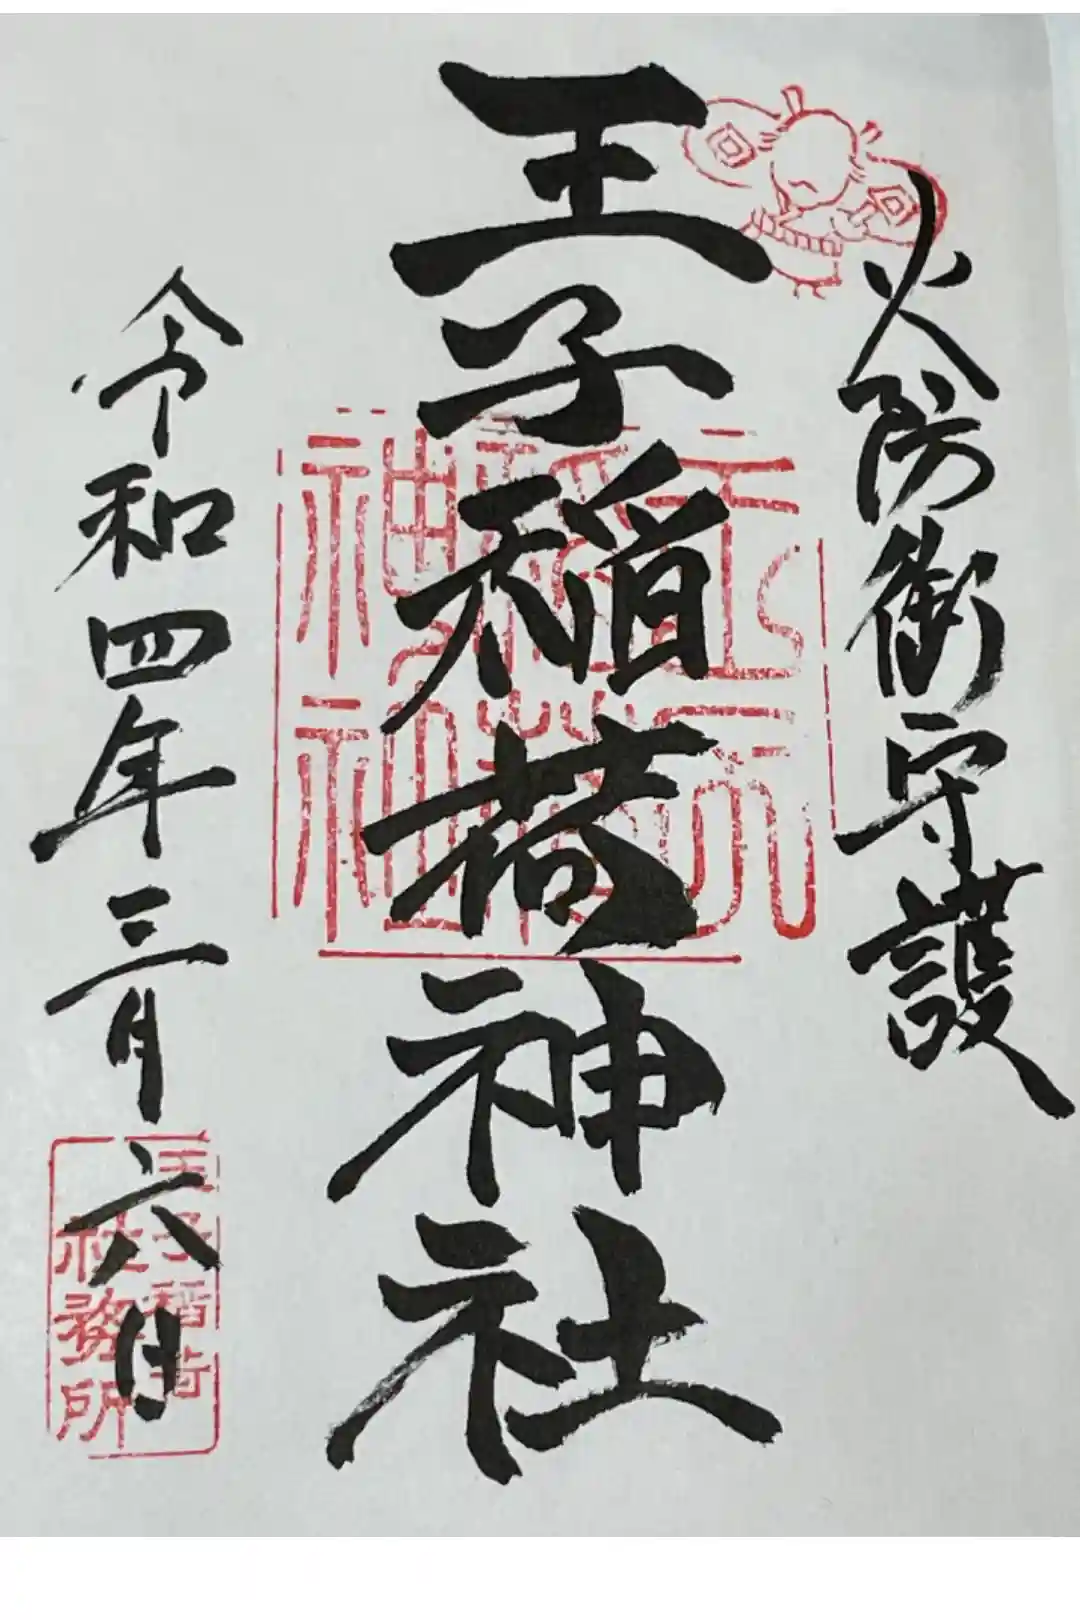 火防御守護
王子稲荷神社
令和四年三月六日
王子稲荷
社務所